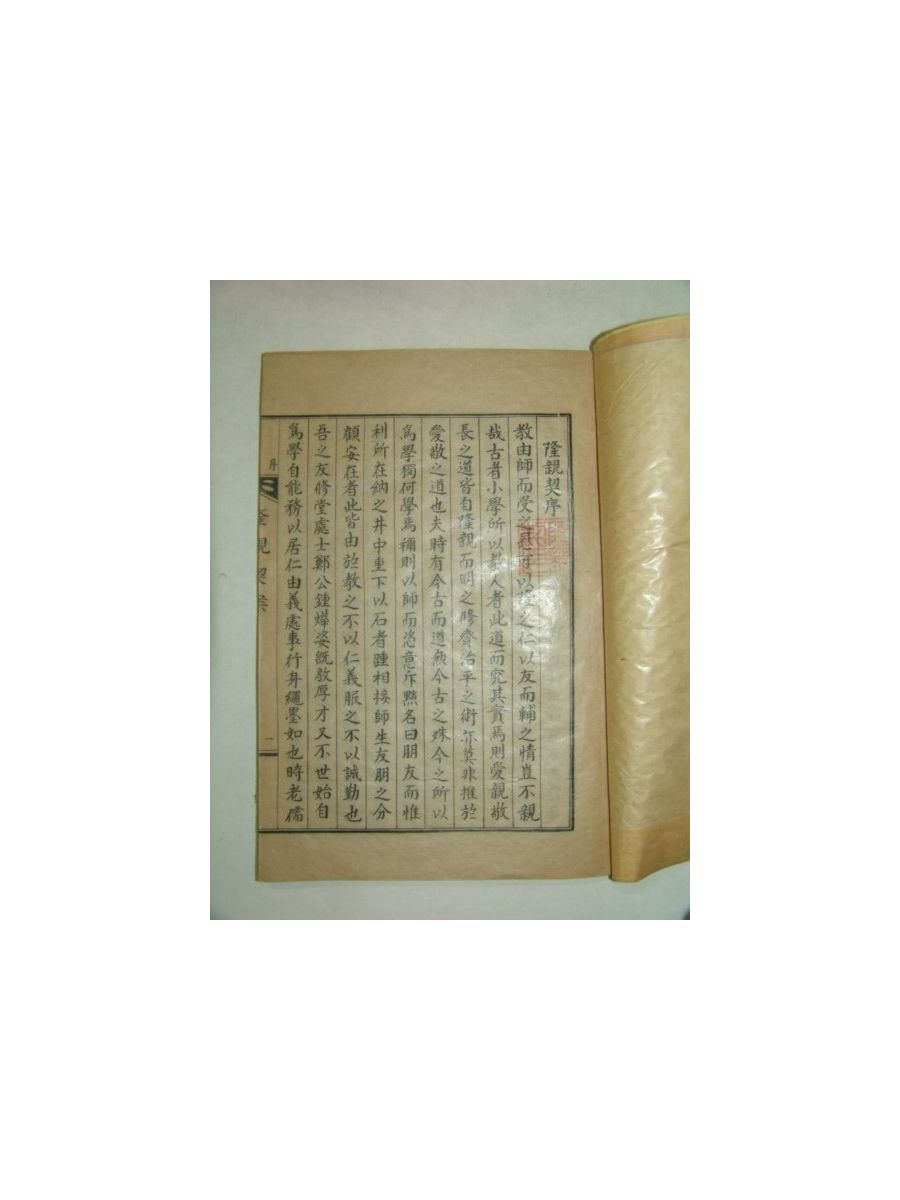 隆親契序
教由師而受之恩可以隆之仁以友而輔之情豈不親
哉古者小學所以教人者此道而究其實焉則愛親敬
長之道皆自隆親而明之脩齊治平之術亦莫非推於
愛敬之道也夫時有今古而道無今古之殊今之所以
爲學獨何學焉稱則以師而恣意斥黜名曰朋友而惟
利所在納之井中重下以石者踵相接師生友朋之分
顧安在者此皆由於教之不以仁義服之不以誠勤也
吾之友修堂處士鄭公鍾燁姿旣敦厚才又不世始自
爲學自能務以居仁由義處事行身繩墨如也時老儒
序
隆親契案
一